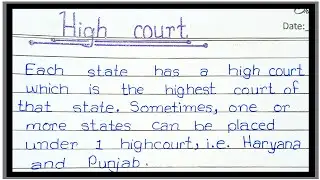 Date:
High court
Each state has a high court
which is the highest court of
that state. Sometimes, one or
more states can be placed
under 1 highcourt, i.e. Haryana
and Punjab.